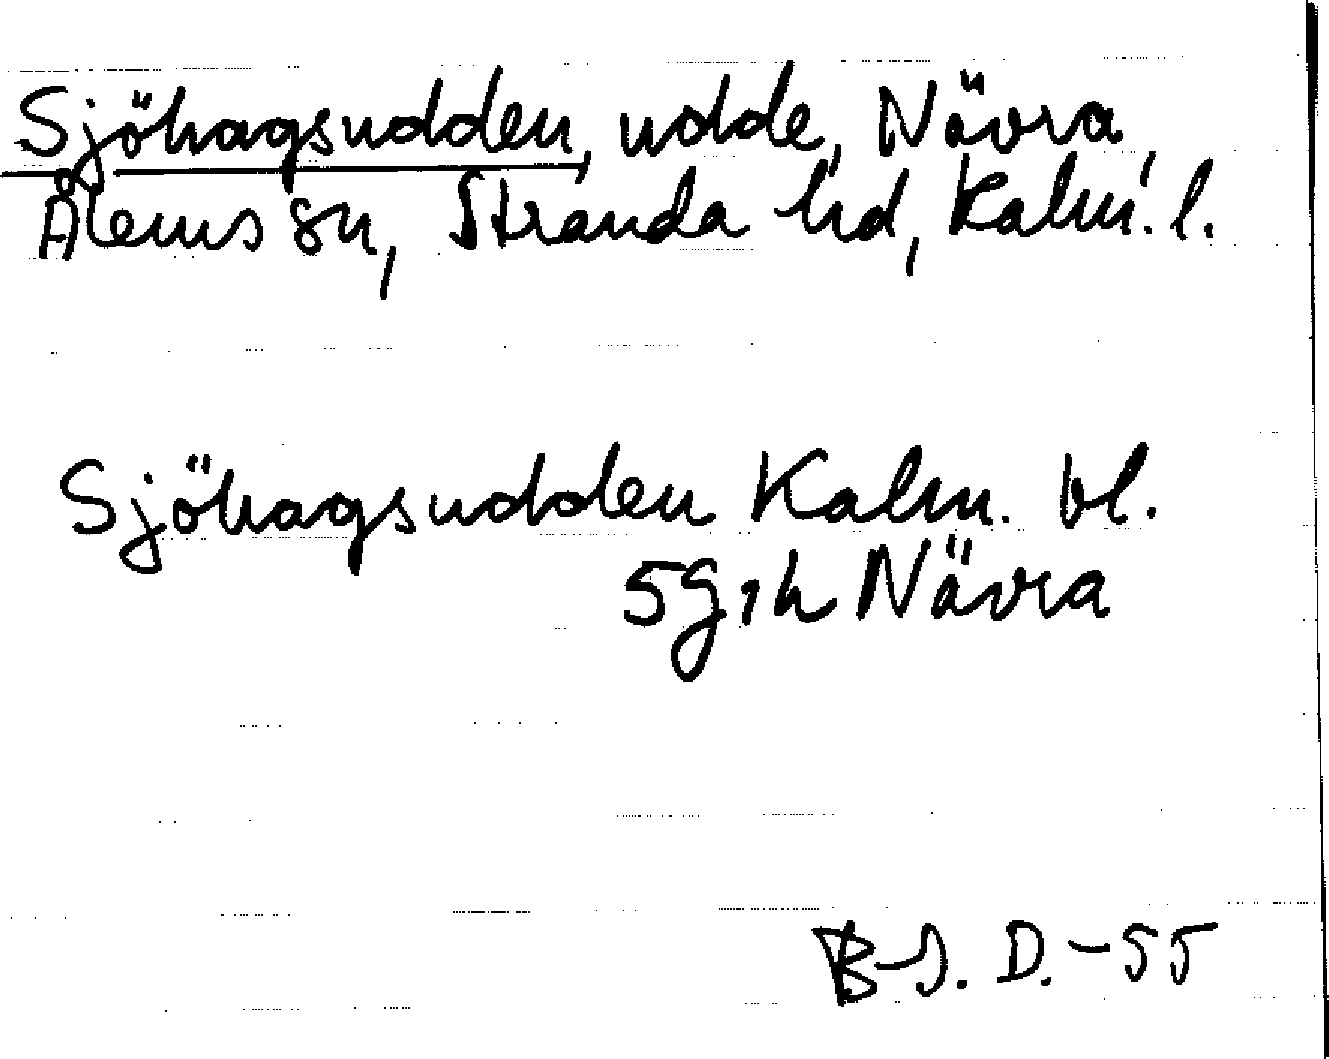 Sjöhagsudden, udde, Nävra,
Ålems sn, Stranda hd, Kalm. l.
Sjöhagsudden Kalm. bl.
5g1h Nävra
B-J. D. -55